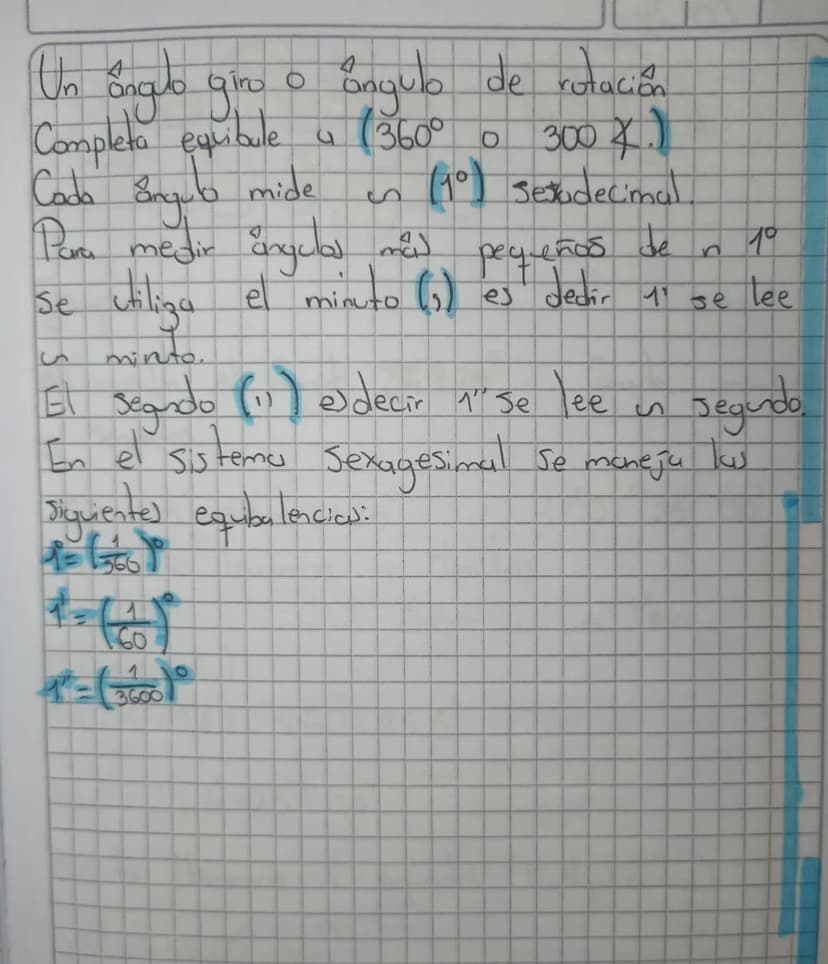 Un ángulo giro o ángulo de rotación
Completa equibale a (360° o 300 ∡.)
Cada ángulo mide un (1°) sexadecimal.
Para medir ángulos más pequeños de un 1°
se utiliza el minuto (,) es dedir 1' se lee
un minto.
El segundo (,,) es decir 1" se lee un segundo.
En el sistema sexagesimal se maneja las
siguientes equibalencias:
1°=(1/360)°
1'=(1/60)°
1"=(1/3600)°